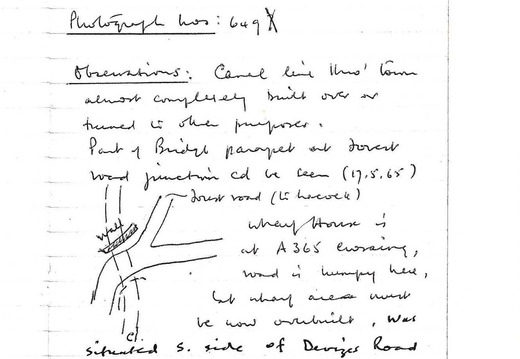 Photograph nos: 649X
Observations: Canal line thro' town
almost completely built over or
turned to other purposes.
Part of Bridge parapet at Forest
road junction cd be seen (17.5.65)
Forest road (to Lacock)
Wall
Wharf House is
at A365 crossing,
road is humpy here,
but wharf area must
be now overbuilt, was
situated S. side of Devizes Road
C